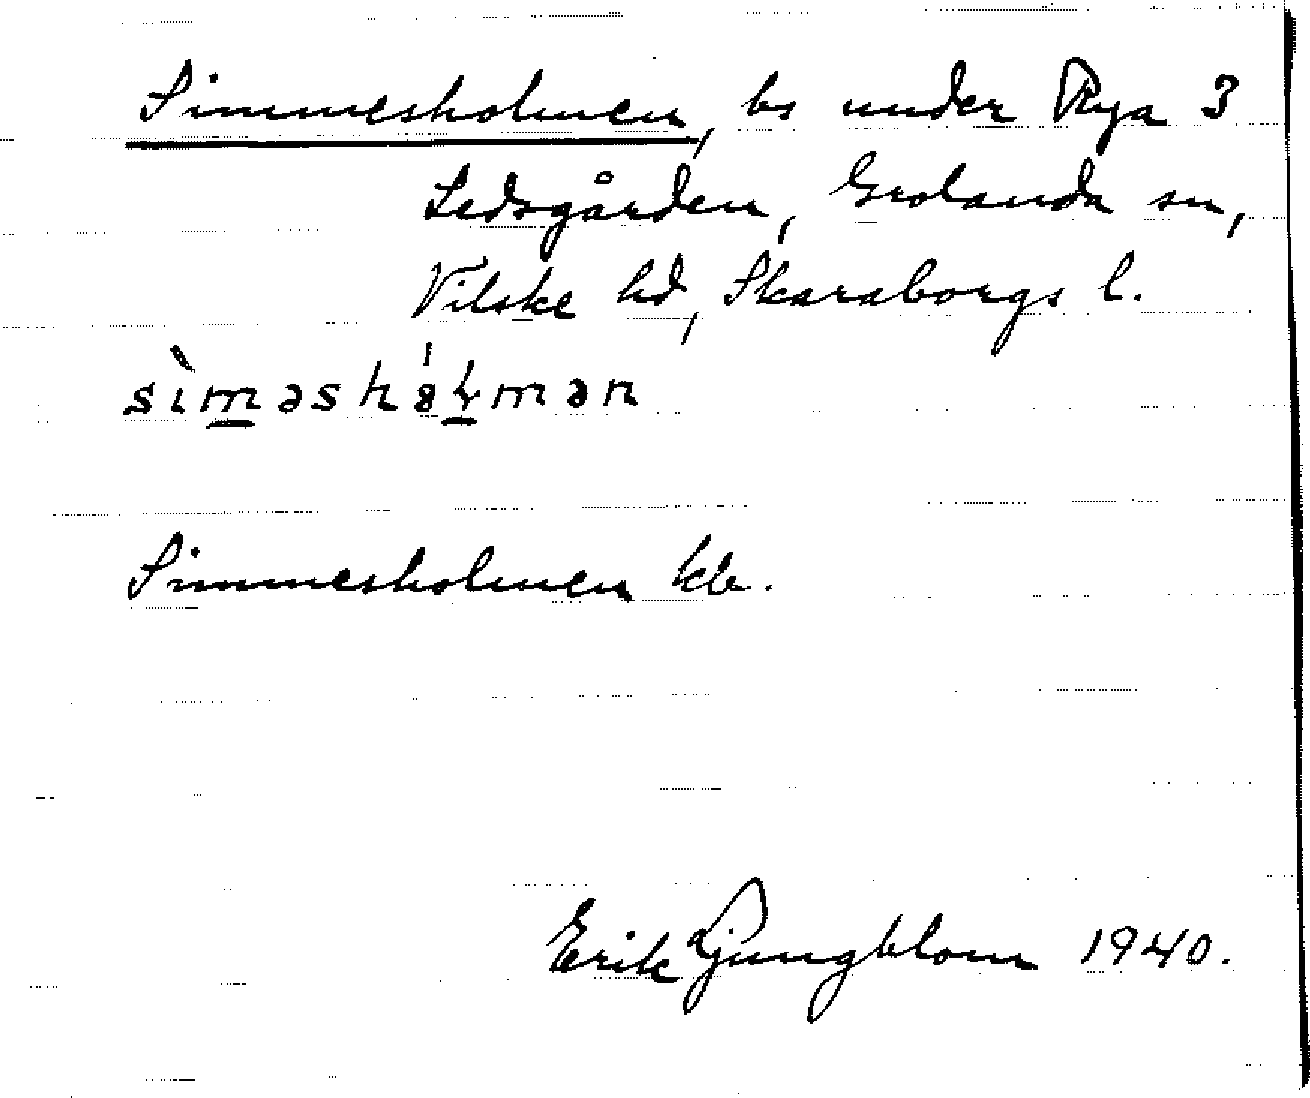 Simmesholmen, bs under Rya 3
Ledsgården, Grolanda sn,
Vilske hd, Skaraborgs l.
sìməshɵ́ɫmən
Simmesholmen kb.
Erik Ljungblom 1940.